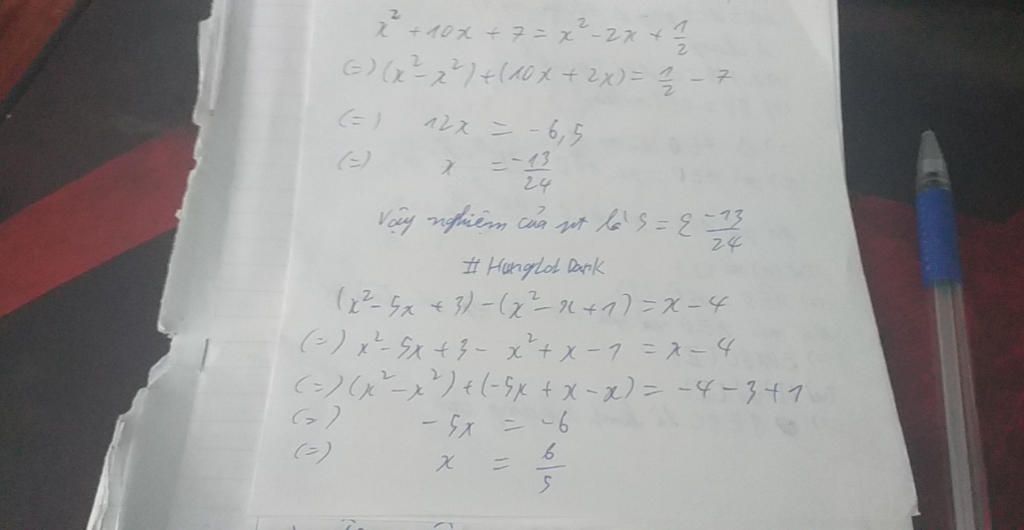 x² + 10x + 7 = x² - 2x + 1/2
(=) (x² - x²) + (10x + 2x) = 1/2 - 7
(=) 12x = -6,5
(=) x = -13/24
Vậy nghiệm của pt là S = { -13/24
# HungLol Dank
(x² - 5x + 3) - (x² - x + 1) = x - 4
(=) x² - 5x + 3 - x² + x - 1 = x - 4
(=) (x² - x²) + (-5x + x - x) = -4 - 3 + 1
(=) -5x = -6
(=) x = 6/5